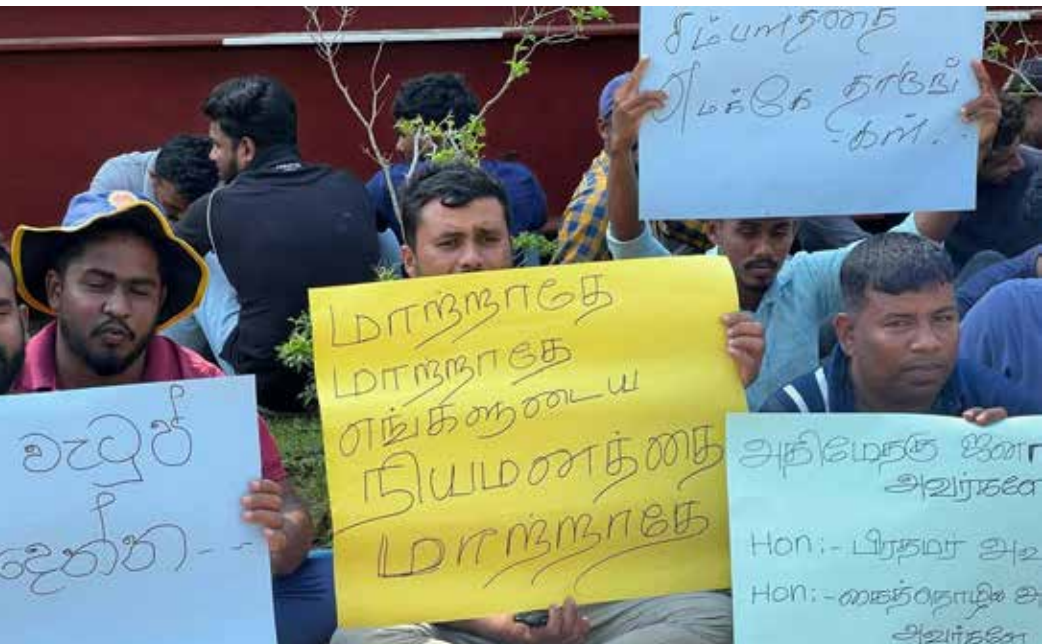 சம்பளத்தை
எமக்கே தாருங்
-கள்.
மாற்றாதே
மாற்றாதே
எங்களுடைய
நியமனத்தை
மாற்றாதே
වැටුප්
දෙන්න--
அதிமேதகு ஜனா
அவர்களே
Hon:- பிரதமர் அவ
Hon:- கைத்தொழில் அ
அவர்களே